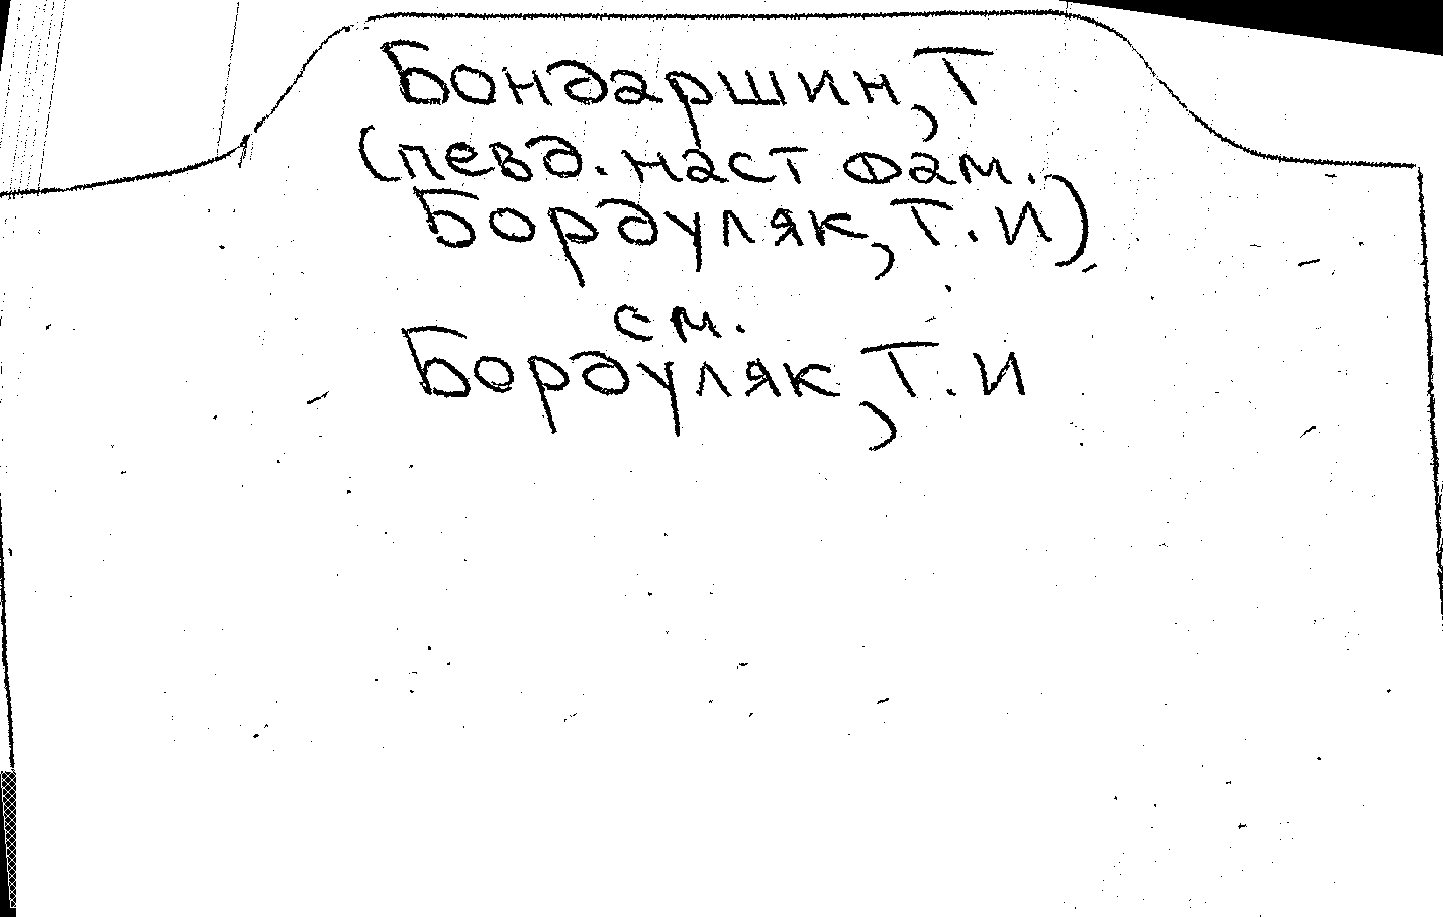 Бондаршин, Т
(певд. наст фам.
Бордуляк, Т. И)
см.
Бордуляк, Т. И